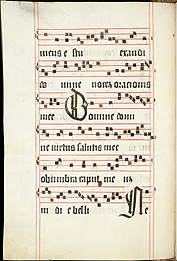 meus es tu exaudi
do mine vocez orationis
mee Domine domi
ne virtus salutis mee
obumbra caput me uz
in di e belli Ne